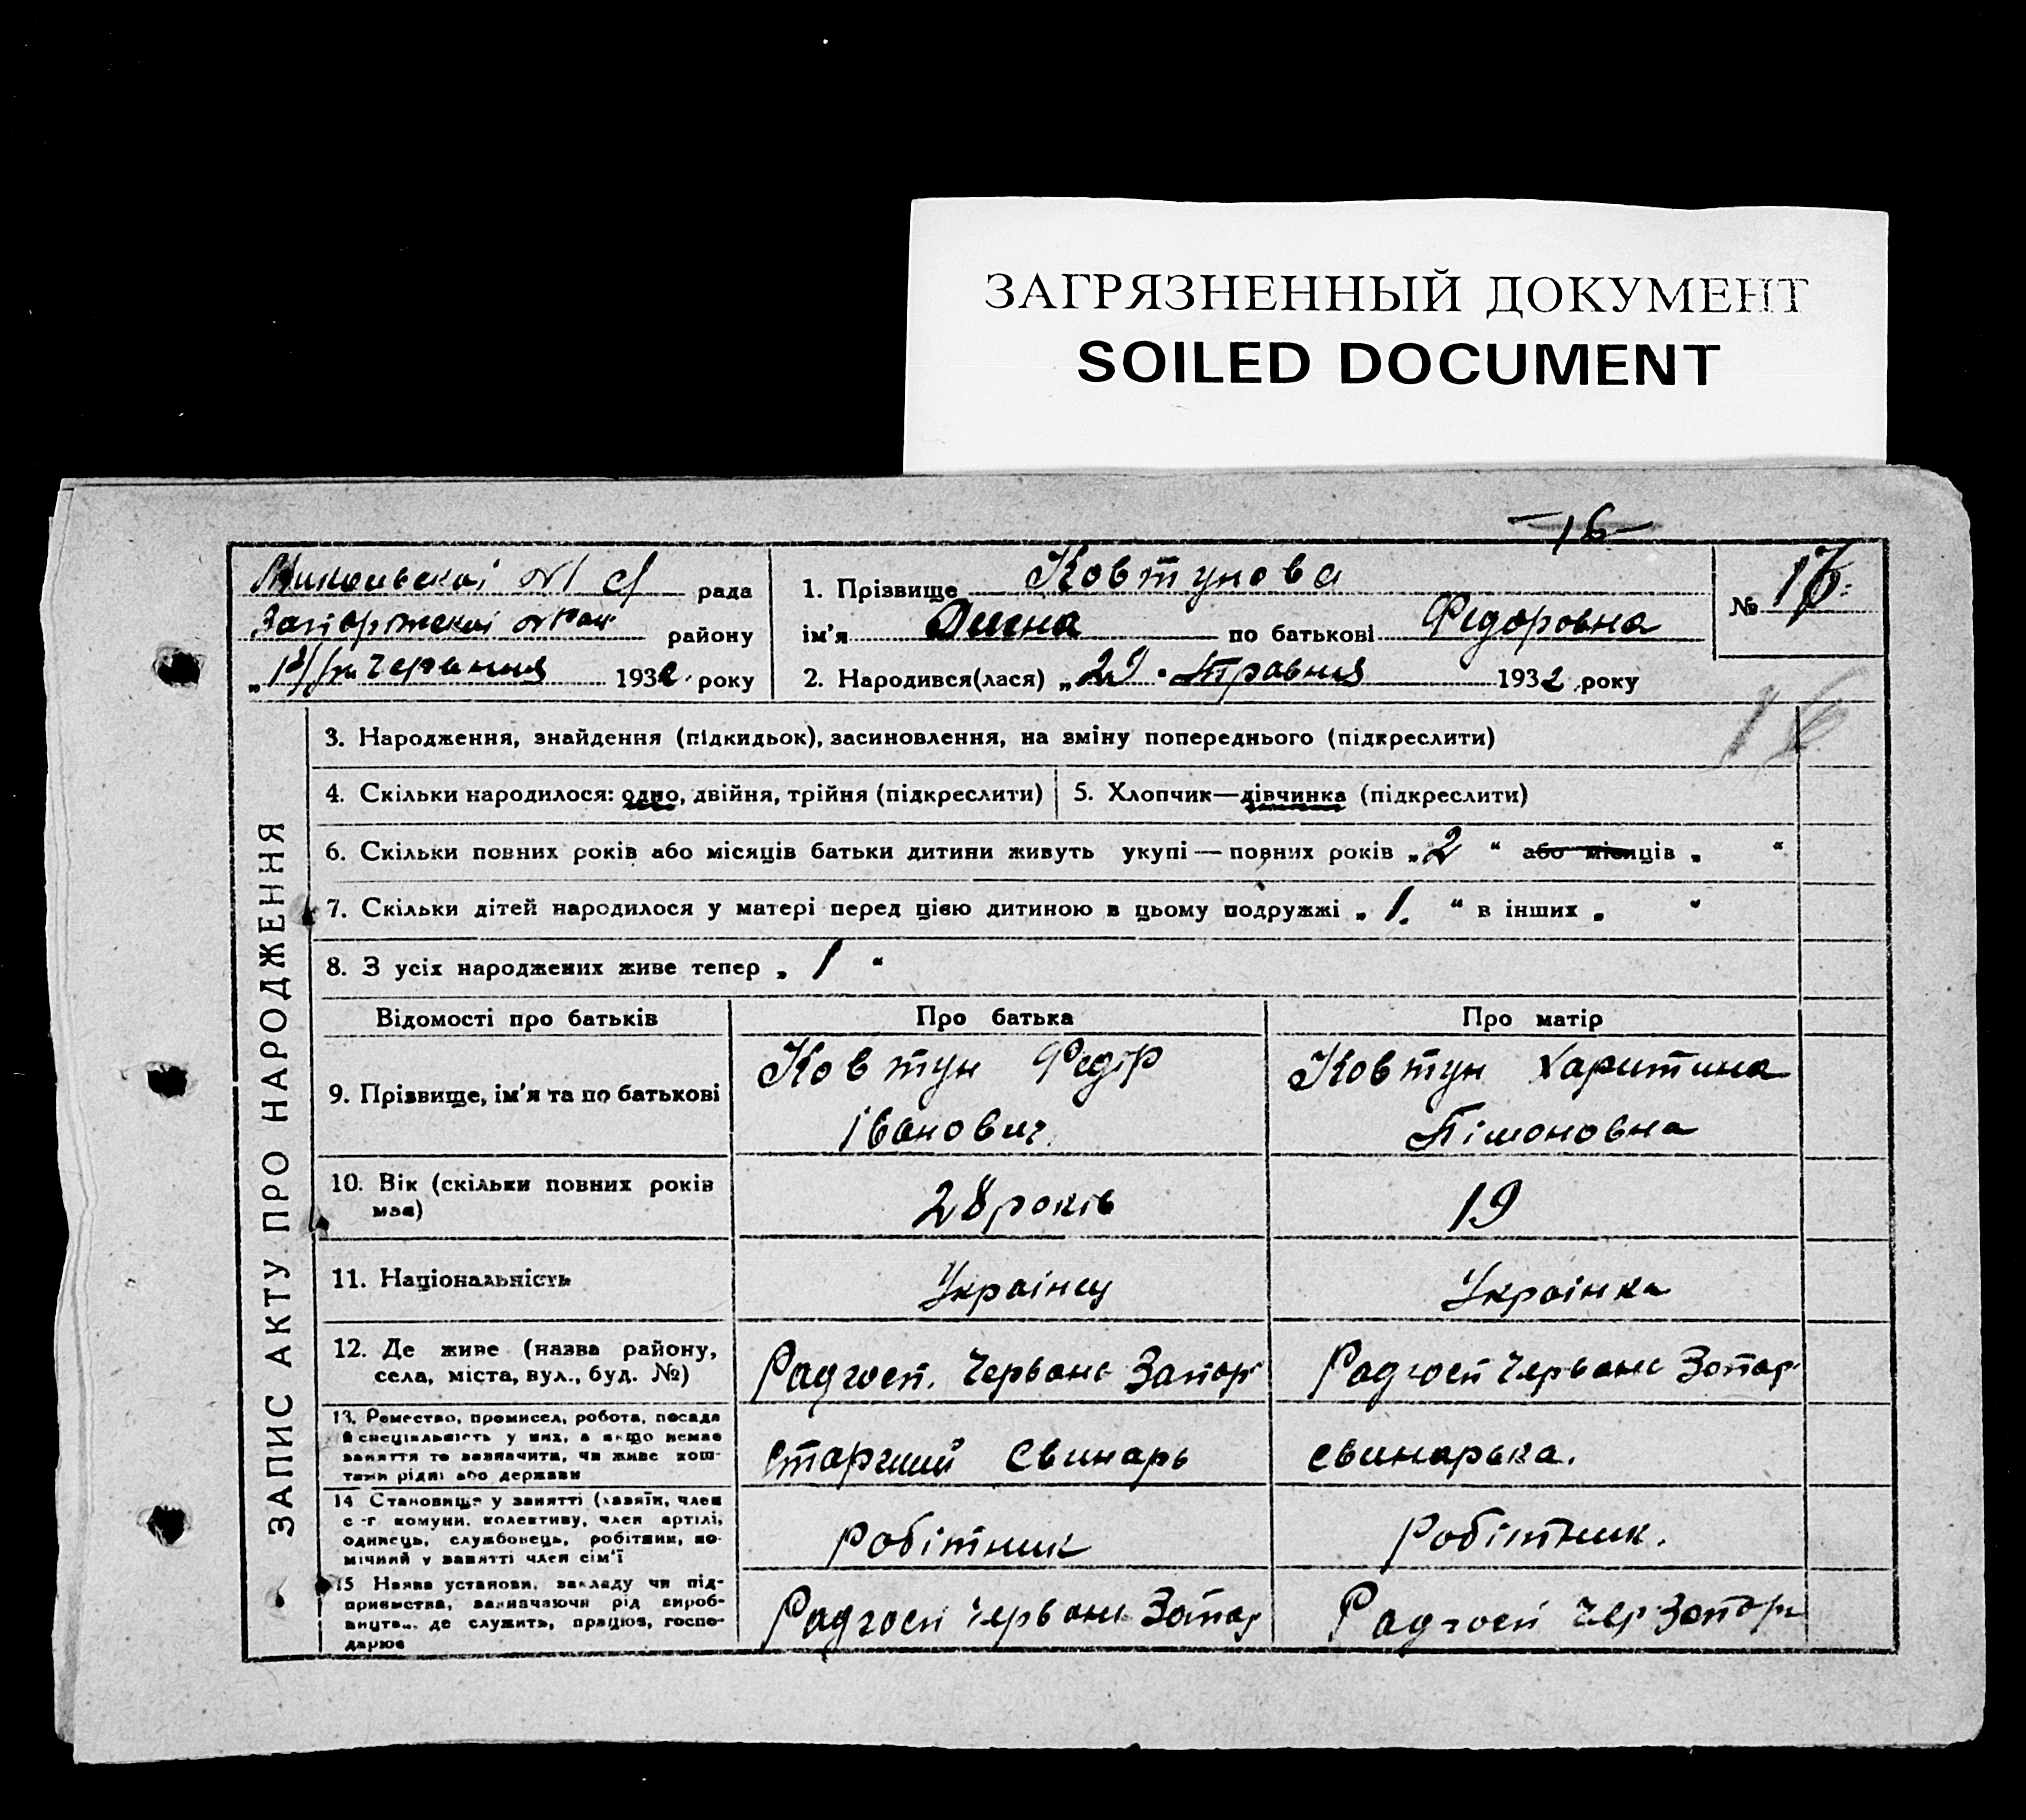 ЗАГРЯЗНЕННЫЙ ДОКУМЕНТ
SOILED DOCUMENT
— 16 —
рада
району
червния 1932 року
1. Прізвище Ковтунова
ім'я по батькові Федоровна
№
2. Народився(лася) „29 • Травня 1932 року
16
3. Народження, знайдення (підкидьок), засиновлення, на зміну попереднього (підкреслити)
4. Скільки народилося: одно, двійня, трійня (підкреслити)
5. Хлопчик—дівчинка (підкреслити)
6. Скільки повних років або місяців батьки дитини живуть укупі — повних років „ 2 “ або місяців „ “
7. Скільки дітей народилося у матері перед цією дитиною в цьому подружжі „ 1. “ в інших „ “
8. З усіх народжених живе тепер „ 1 “
ЗАПИС АКТУ ПРО НАРОДЖЕННЯ
Відомості про батьків
Про батька
Про матір
9. Прізвище, ім'я та по батькові
Ковтун Федір
Іванович
Ковтун Харитина
Пімоновна
10. Вік (скільки повних років
має)
28 років
19
11. Національність
Українец
Українка
12. Де живе (назва району,
села, міста, вул., буд. №)
Радгосп. Червоне Запор
Радгосп Червоне Запор
13. Ремество, промисел, робота, посада
й спеціальність у них, а якщо немає
заняття то зазначити, чи живе кош-
тами рідні або держави
Старший Свинарь
свинарька.
14 Становище у занятті (хазяїн, член
с.-г. комуни, колективу, член артілі,
одинець, службовець, робітник, по-
мічний у занятті член сім'ї
робітник
робітник.
15 Назва установи, закладу чи під-
приємства, зазначаючи рід вироб-
ництв, де служить, працює, госпо-
дарює
Радгосп Червоне Запор
Радгосп Чер Запор